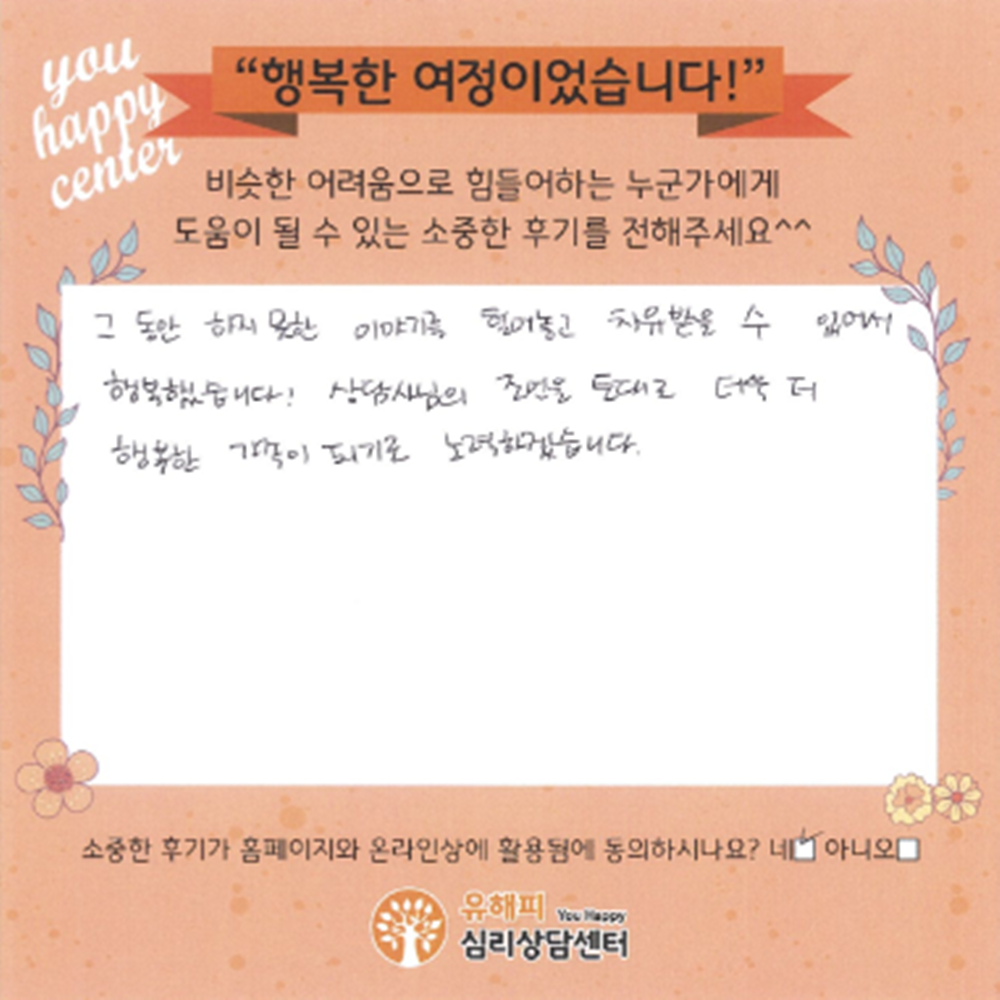 you
happy
center
“행복한 여정이었습니다!”
비슷한 어려움으로 힘들어하는 누군가에게
도움이 될 수 있는 소중한 후기를 전해주세요^^
그 동안 하지 못한 이야기를 털어놓고 치유받을 수 있어서
행복했습니다! 상담사님의 조언을 토대로 더욱 더
행복한 가족이 되기로 노력하겠습니다.
소중한 후기가 홈페이지와 온라인상에 활용됨에 동의하시나요? 네 아니오
유해피 You Happy
심리상담센터